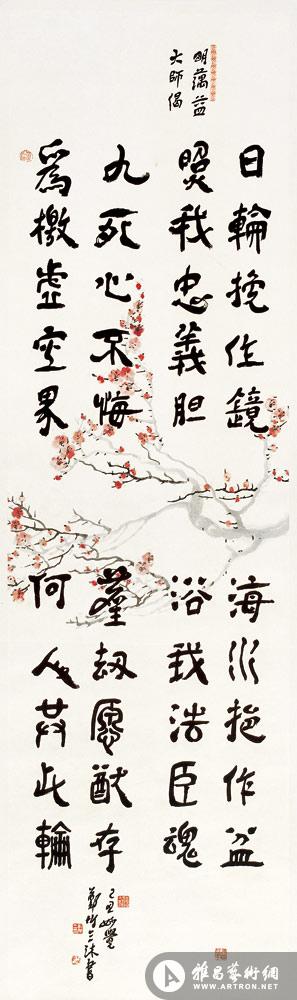 明蕅益
大師偈
日輪挽作鏡 海水挹作盆
照我忠義胆 浴我法臣魂
九死心不悔 塵劫願猶存
爲檄虛空界 何人共此輪
己丑
鄭竹三沐書
雅昌藝術網
WWW.ARTRON.NET